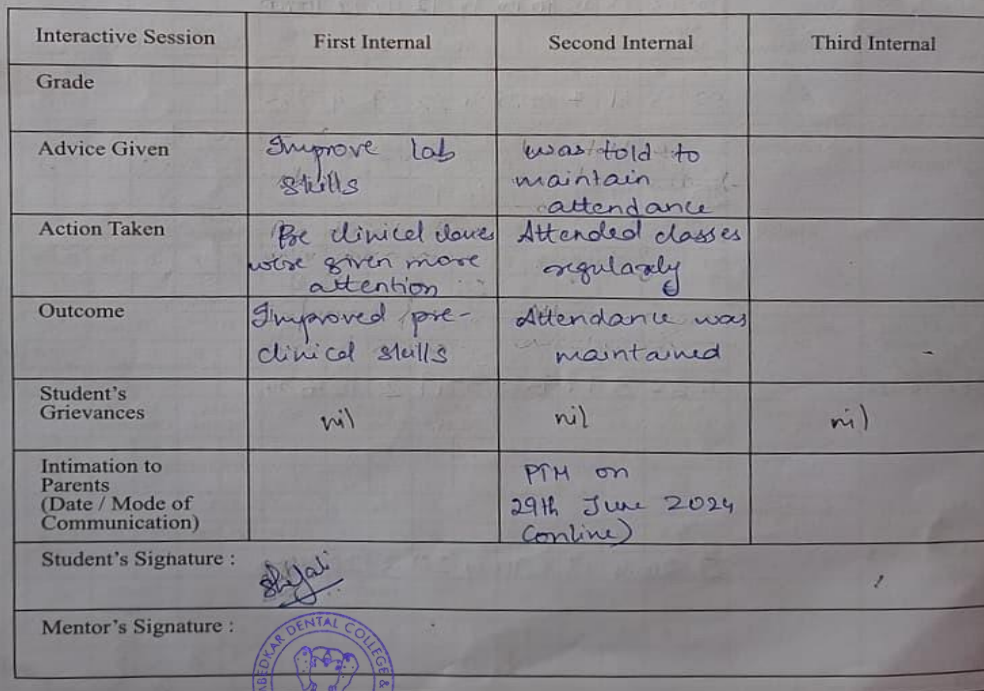 Interactive Session First Internal Second Internal Third Internal
Grade
Advice Given
Improve lab
skills
was told to
maintain
attendance
Action Taken
Pre clinical
were given more
attention
Attended classes
regularly
Outcome
Improved pre-
clinical skills
Attendance was
maintained
Student's
Grievances
nil
nil
nil
Intimation to
Parents
(Date / Mode of
Communication)
PTM on
29th June 2024
(online)
Student's Signature :
Mentor's Signature :
DENTAL COLLEGE &